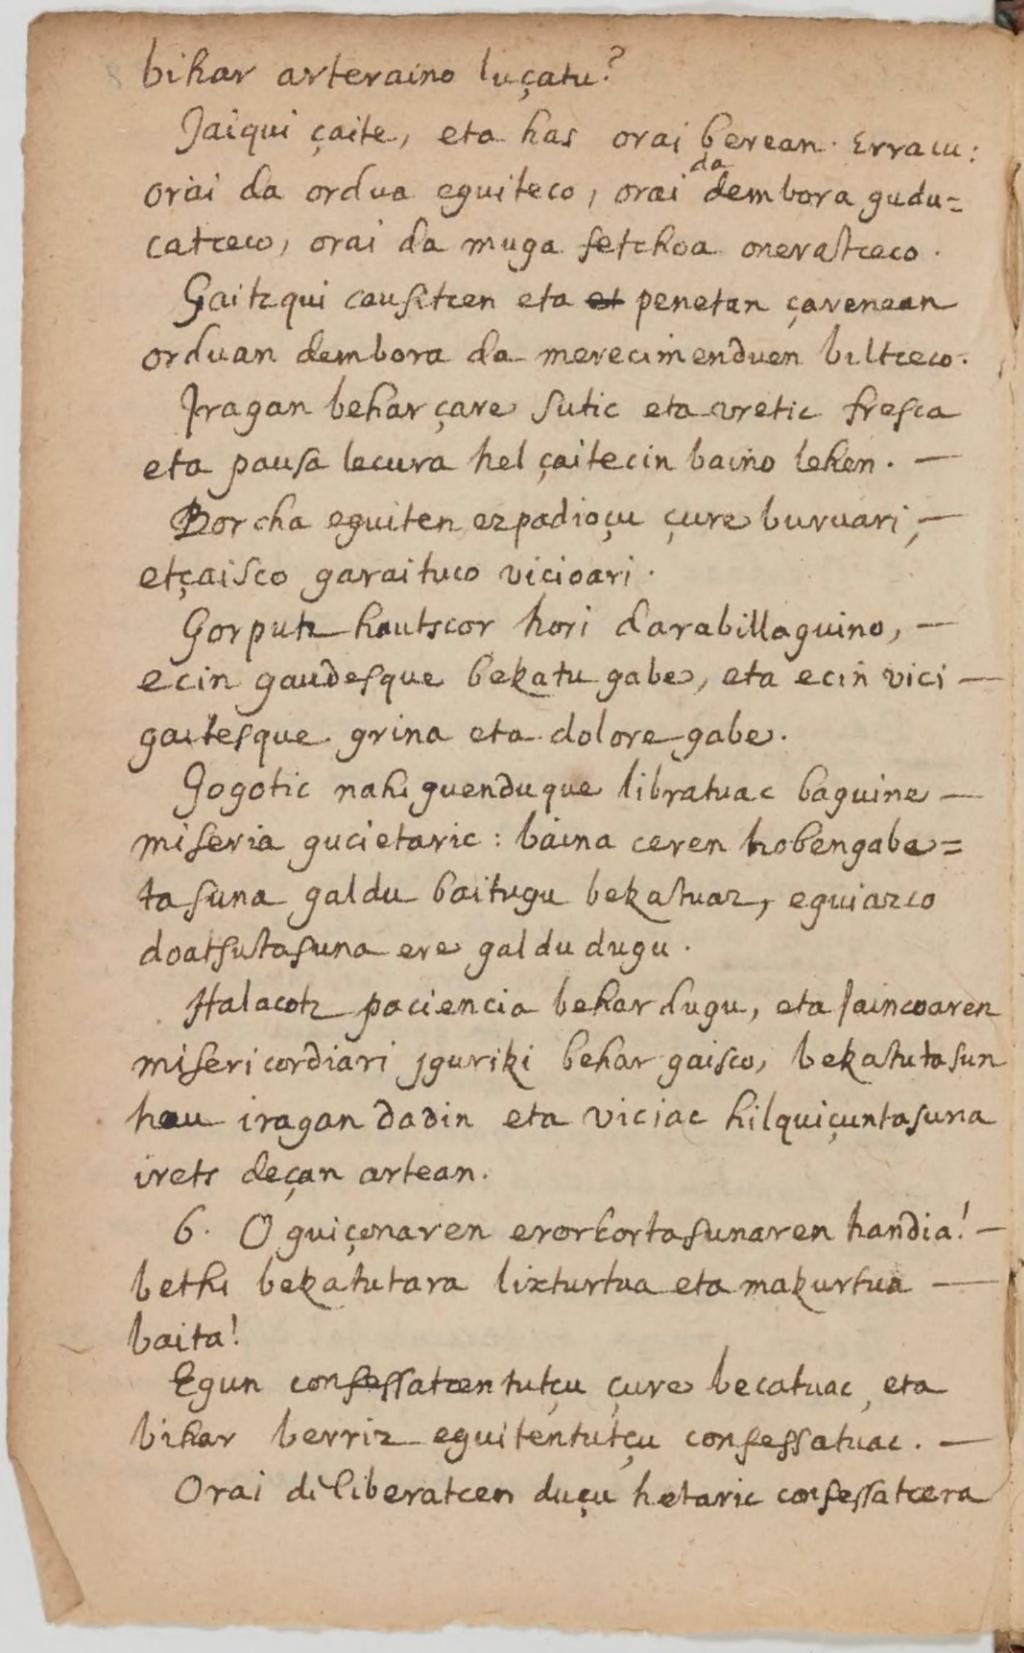 bihar arteraino luçatu?
Jaiqui çaite, eta has orai berean. Erraçu:
orai da ordua eguiteco, orai da dembora gudu=
catceco, orai da muga fetchoa onerastceco.
Gaitzqui causitcen eta et penetan çarenean
orduan dembora da merecimenduen biltceco.
Iragan behar çare sutic eta uretic fresca
eta pausa lecura hel çaitecin baino lehen. —
Borcha eguiten ezpadioçu çure buruari, —
etçaisco garaituco vicioari.
Gorputz hautscor hori darabillaguino, —
ecin gaudesque bekatu gabe, eta ecin vici —
gaitesque grina eta dolore gabe.
Gogotic nahi guenduque libratuac baguine —
miseria gucietaric: baina ceren hobengabe=
tasuna galdu baitugu bekatuaz, eguiazco
doatsutasuna ere galdu dugu.
Halacotz paciencia behar dugu, eta Jaincoaren
misericordiari jguriki behar gaisco, bekatutasun
hau iragan dadin eta viciac hilquiçuntasuna
irets deçan artean.
6. O guiçonaren erorkortasunaren handia! —
bethi bekatutara lixturtua eta makurtua —
baita!
Egun confessatcentutçu çure becatuac, eta
bihar berriz eguitentutçu confessatuac. —
Orai diliberatcen duçu hetaric confessatcera